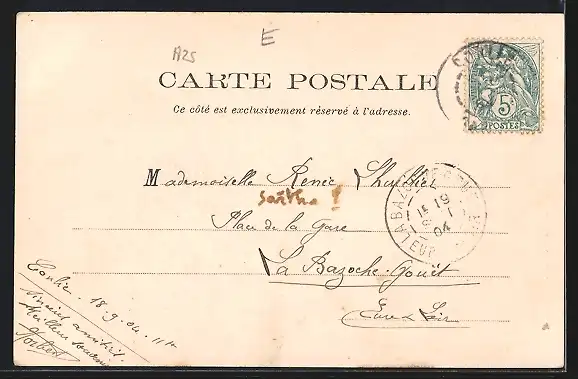 A25
E
CARTE POSTALE
Ce côté est exclusivement réservé à l'adresse.
5c
POSTES
Mademoiselle Renée
Sarthe !
Place de la Gare
La Bazoche-Gouët
Eure & Loir
LA BAZOCHE
19
04
Conlie 18-9-04 11h
amitiés
Meilleur souvenir